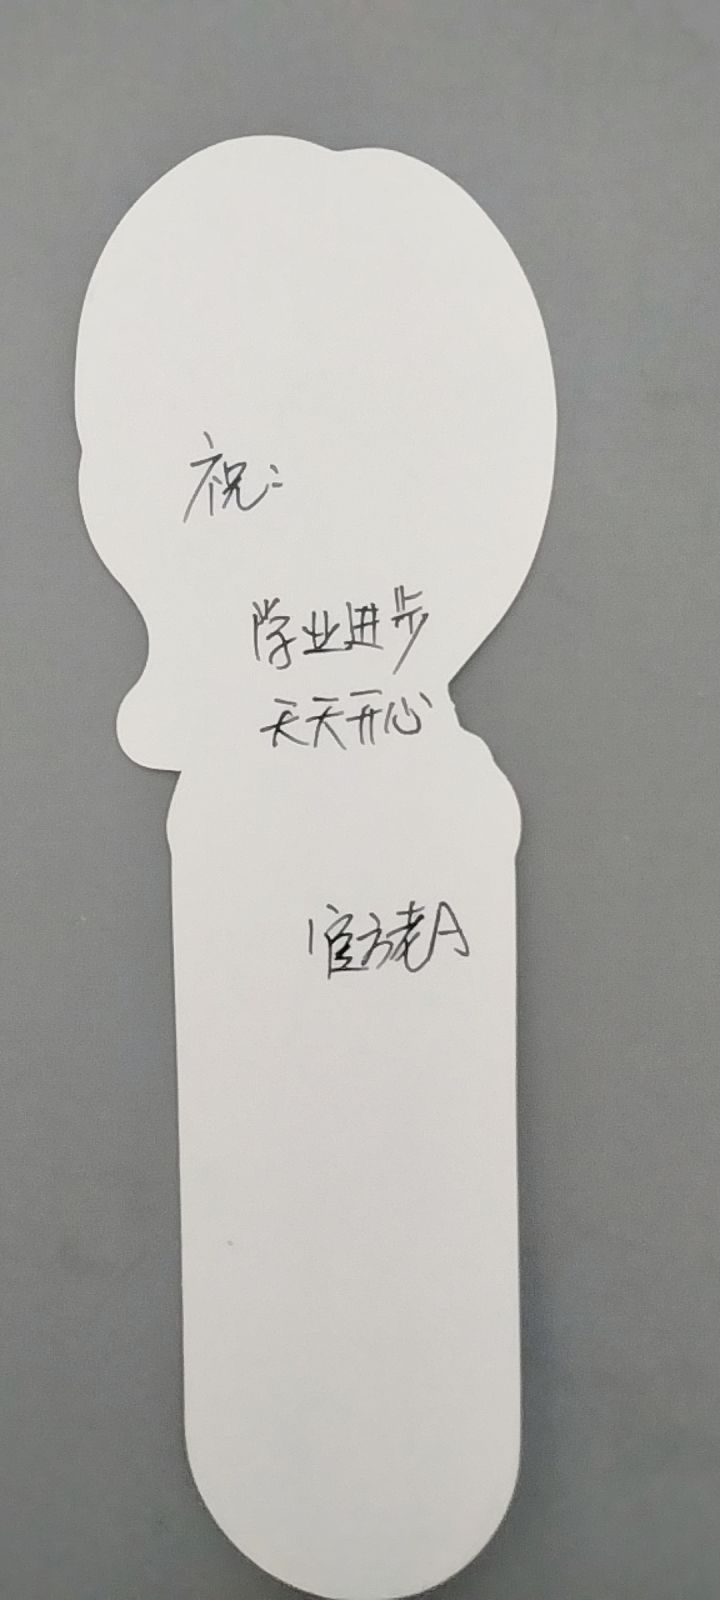 祝:
学业进步
天天开心
官方老A